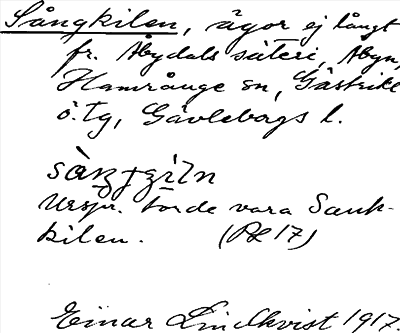 Sångkilen, ägor ej långt
fr. Åbydals säteri, Åbyn,
Hamrånge sn, Gästrikl
ö. tg, Gävleborgs l.
Urspr. torde vara Sank-
kilen. (Pl 17)
Einar Lindkvist 1917.